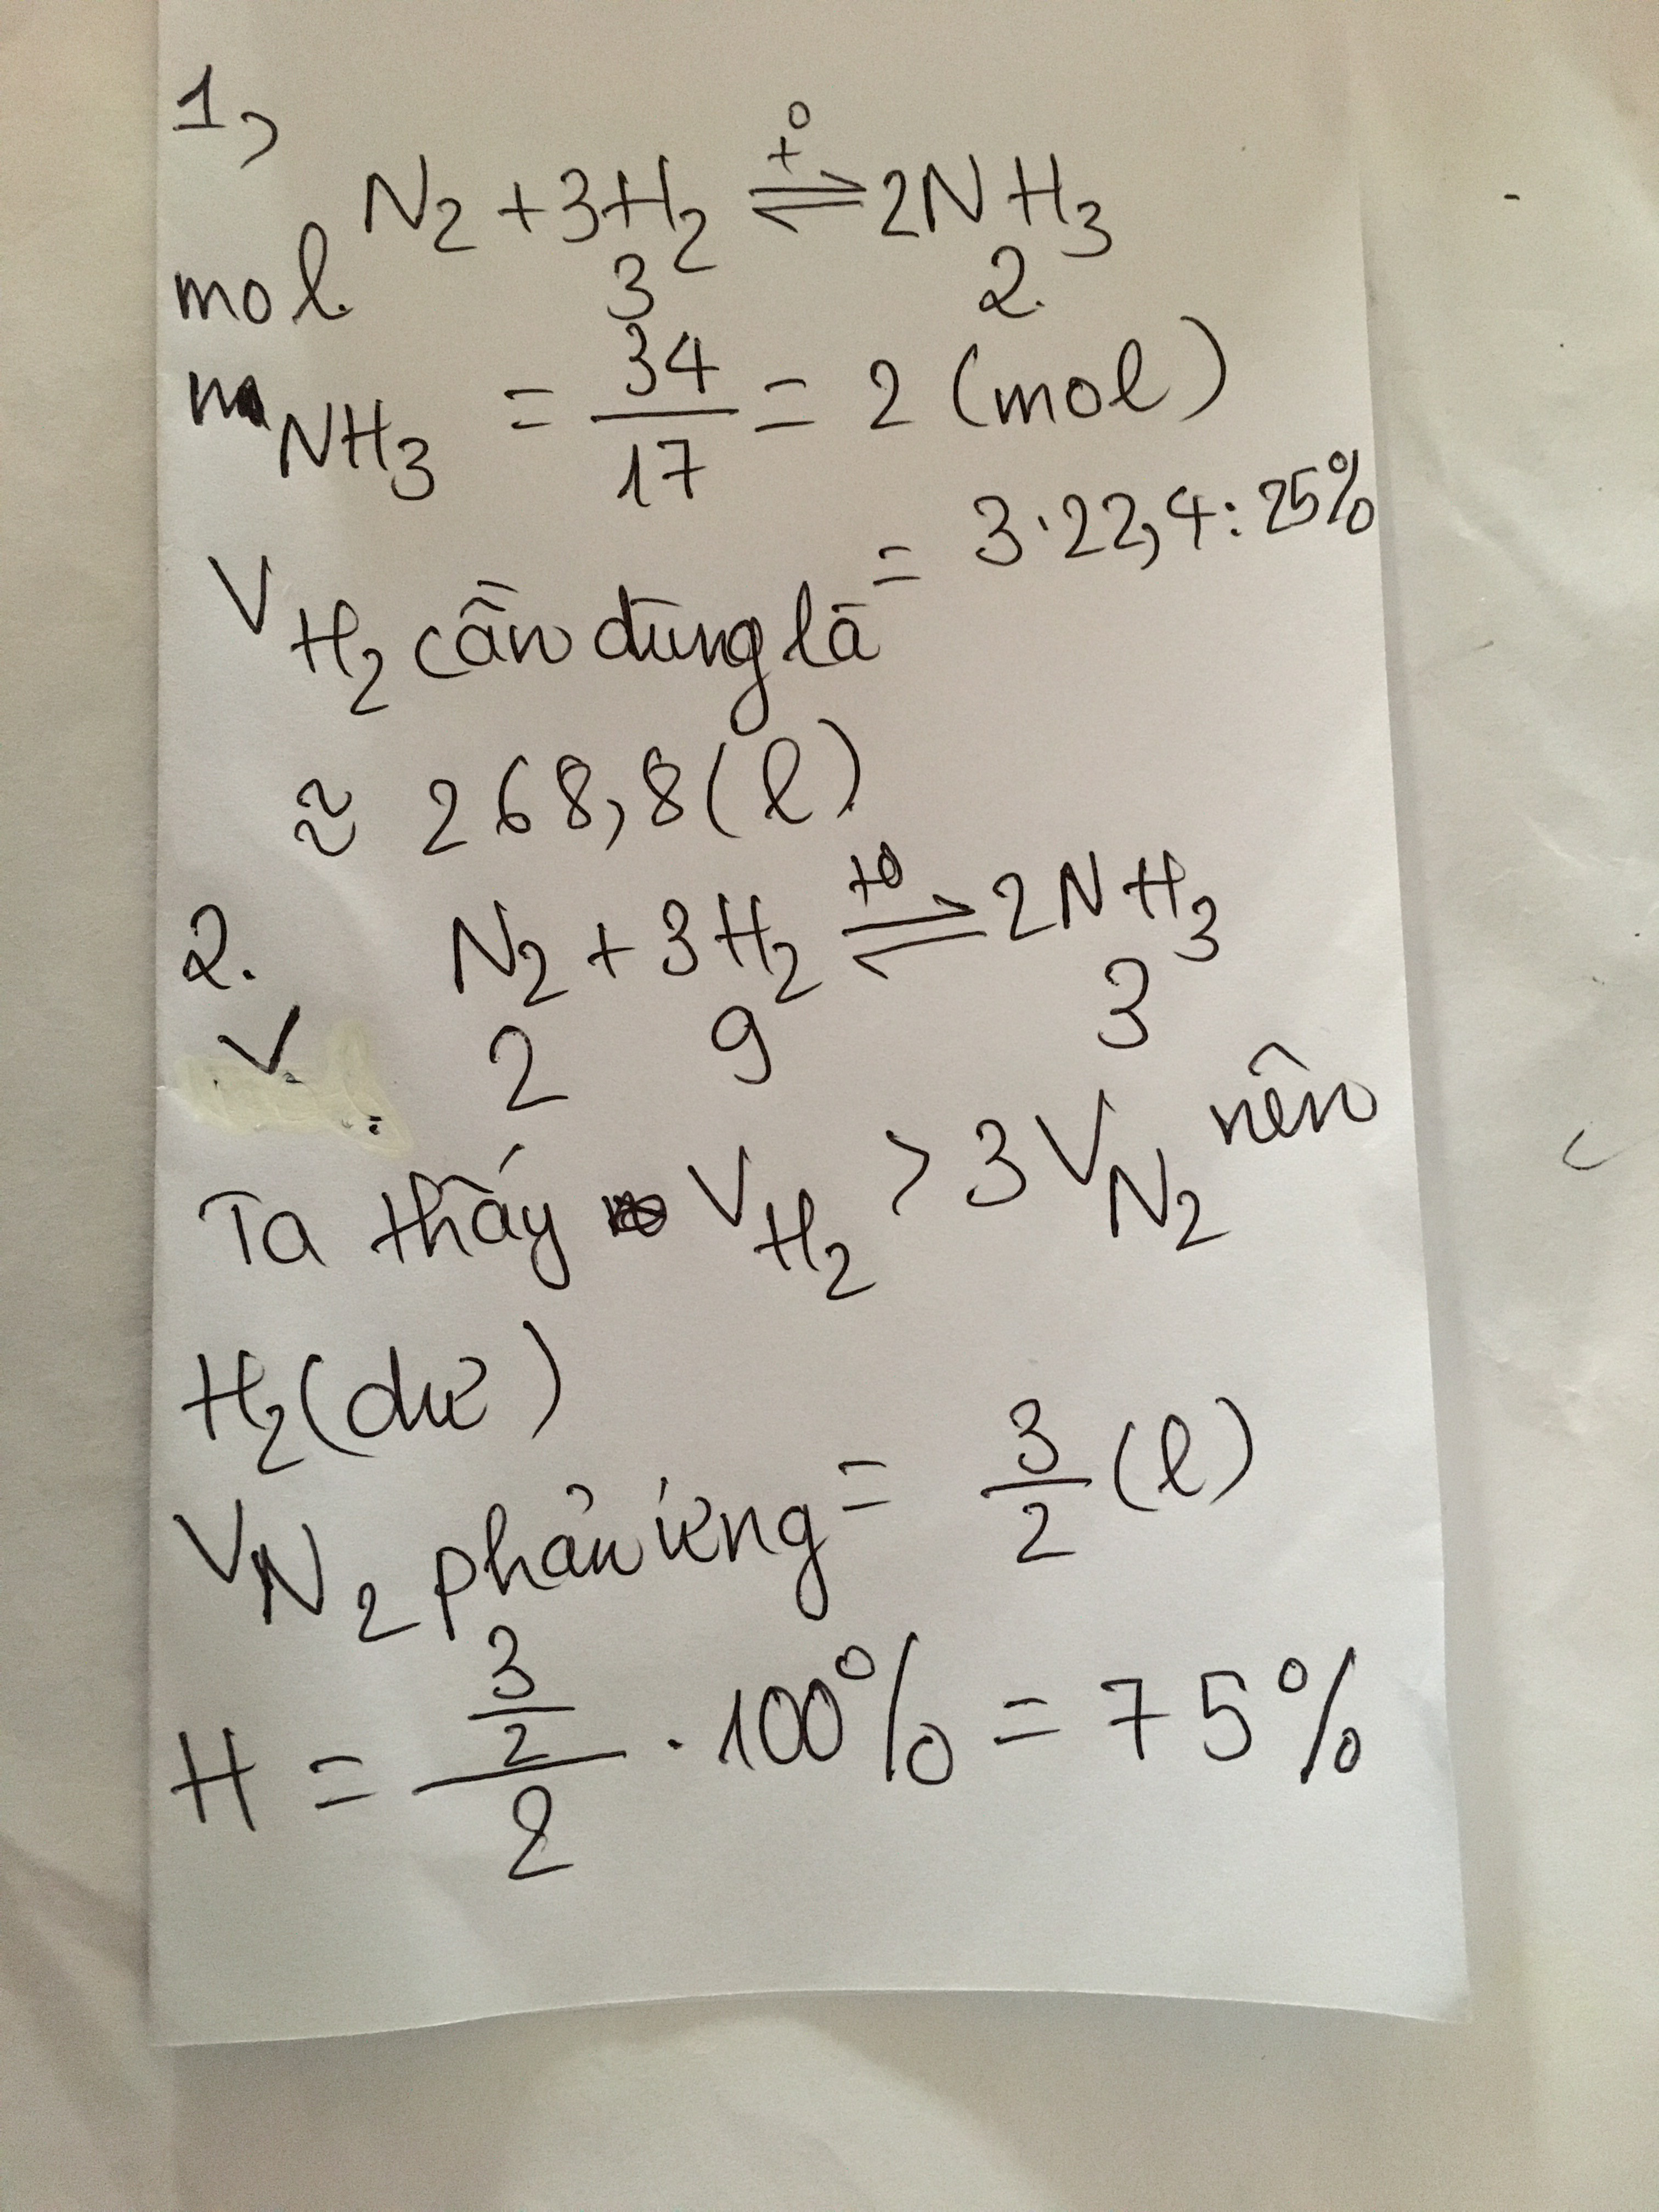 1,
N2 + 3H2 ⇌ 2NH3
t°
mol 3 2
nNH3 = 34/17 = 2 (mol)
VH2 cần dùng là = 3.22,4:25%
≈ 268,8 (l)
2. N2 + 3H2 ⇌ 2NH3
t°
V 2 9 3
Ta thấy VH2 > 3VN2 nên
H2 (dư)
VN2 phản ứng = 3/2 (l)
H = (3/2)/2 . 100% = 75%